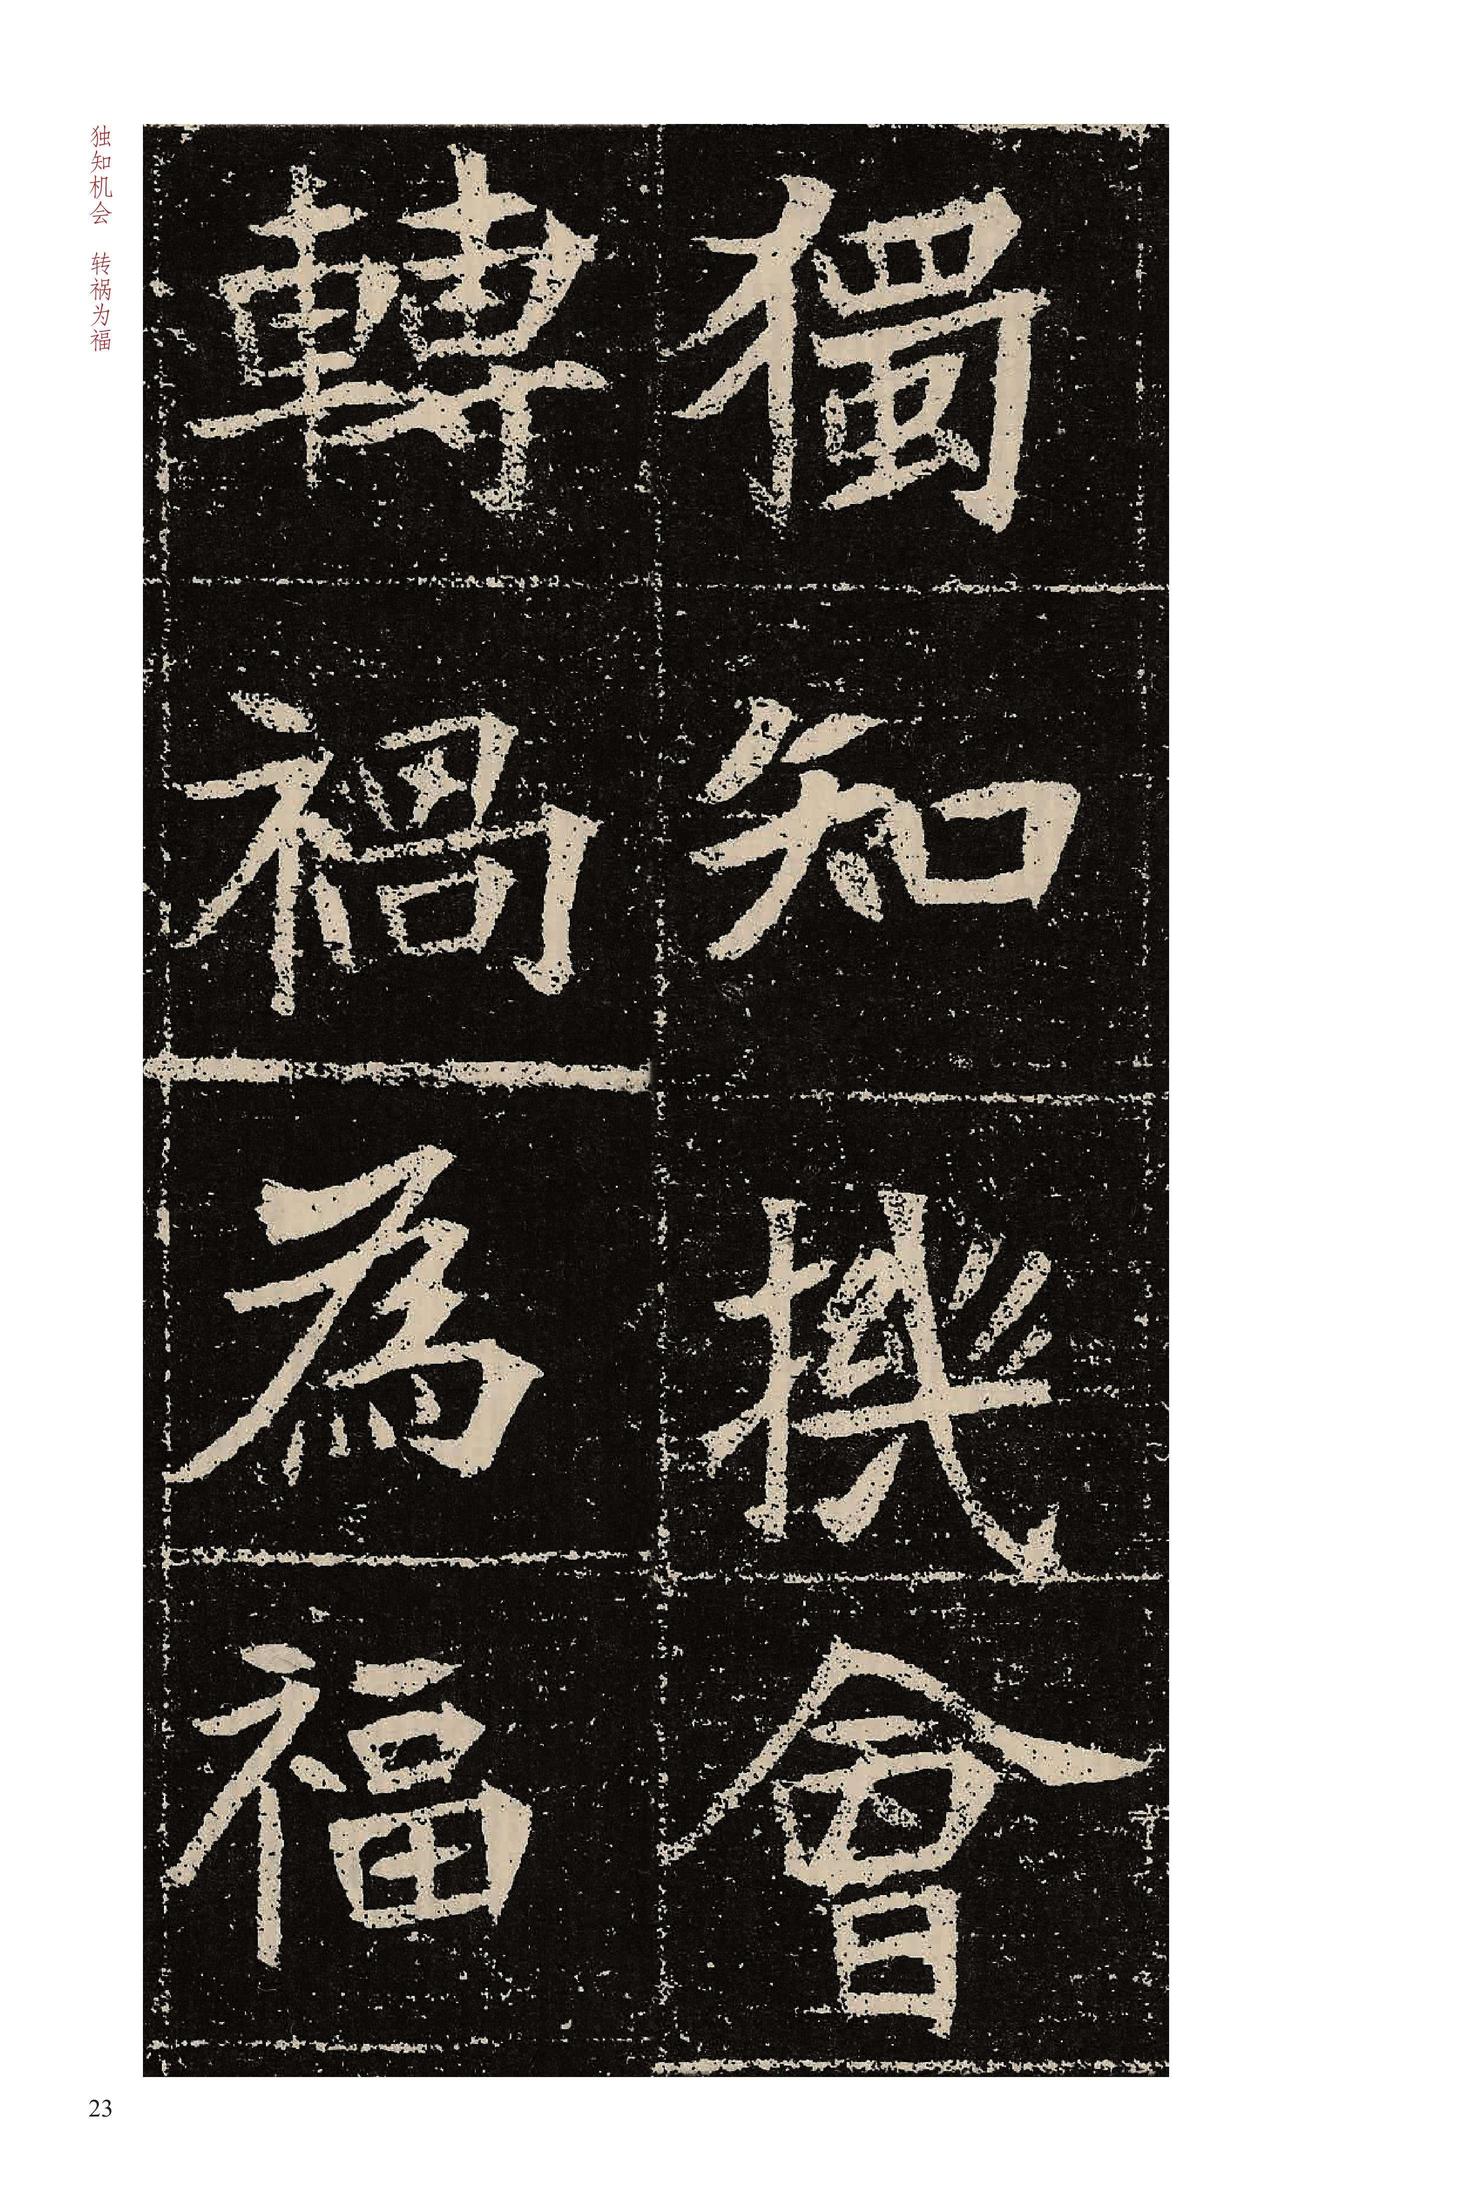 獨知機會
轉禍為福
独知机会 转祸为福
23